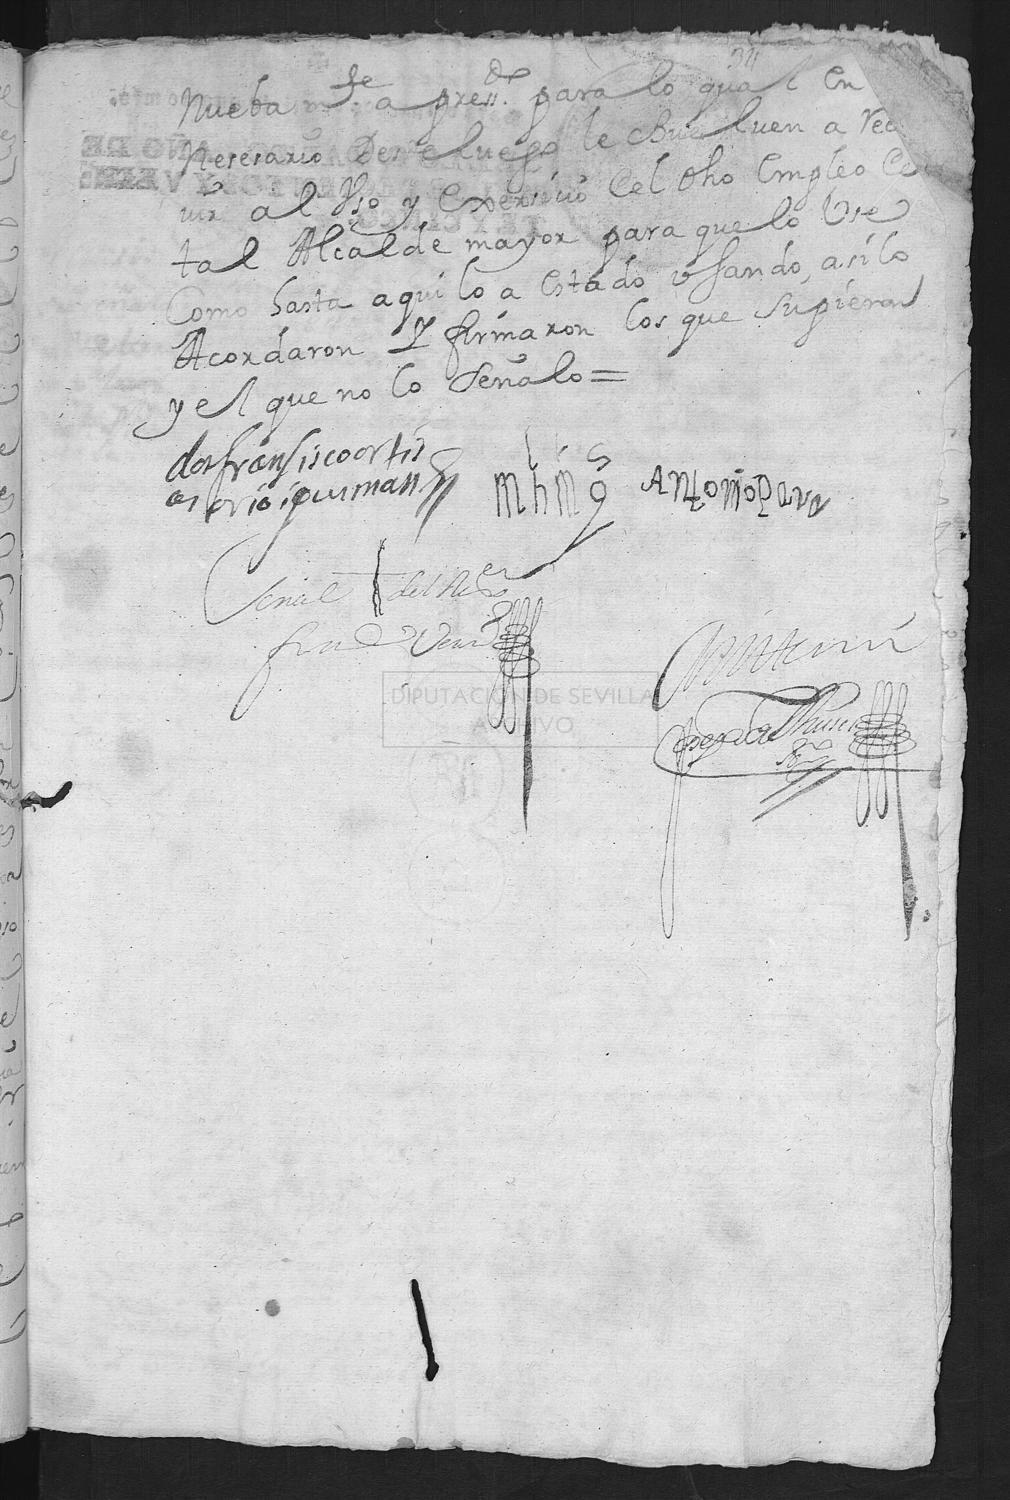 34
Nueba fe a press.te para lo qual en
Neresario Desde luego le buelluen a Rec
uir al Vso y Exersicio Del dho Empleo de
tal Alcalde mayor para que lo Vse
Como hasta aqui lo a estado Vsando, asi lo
Acordaron y firmaron los que supieron
y el que no lo señalo =
don fransisco ortis
osorio i gusman
Antonio
Señal del Rex.or
DIPUTACION DE SEVILLA
ARCHIVO
Ante mi